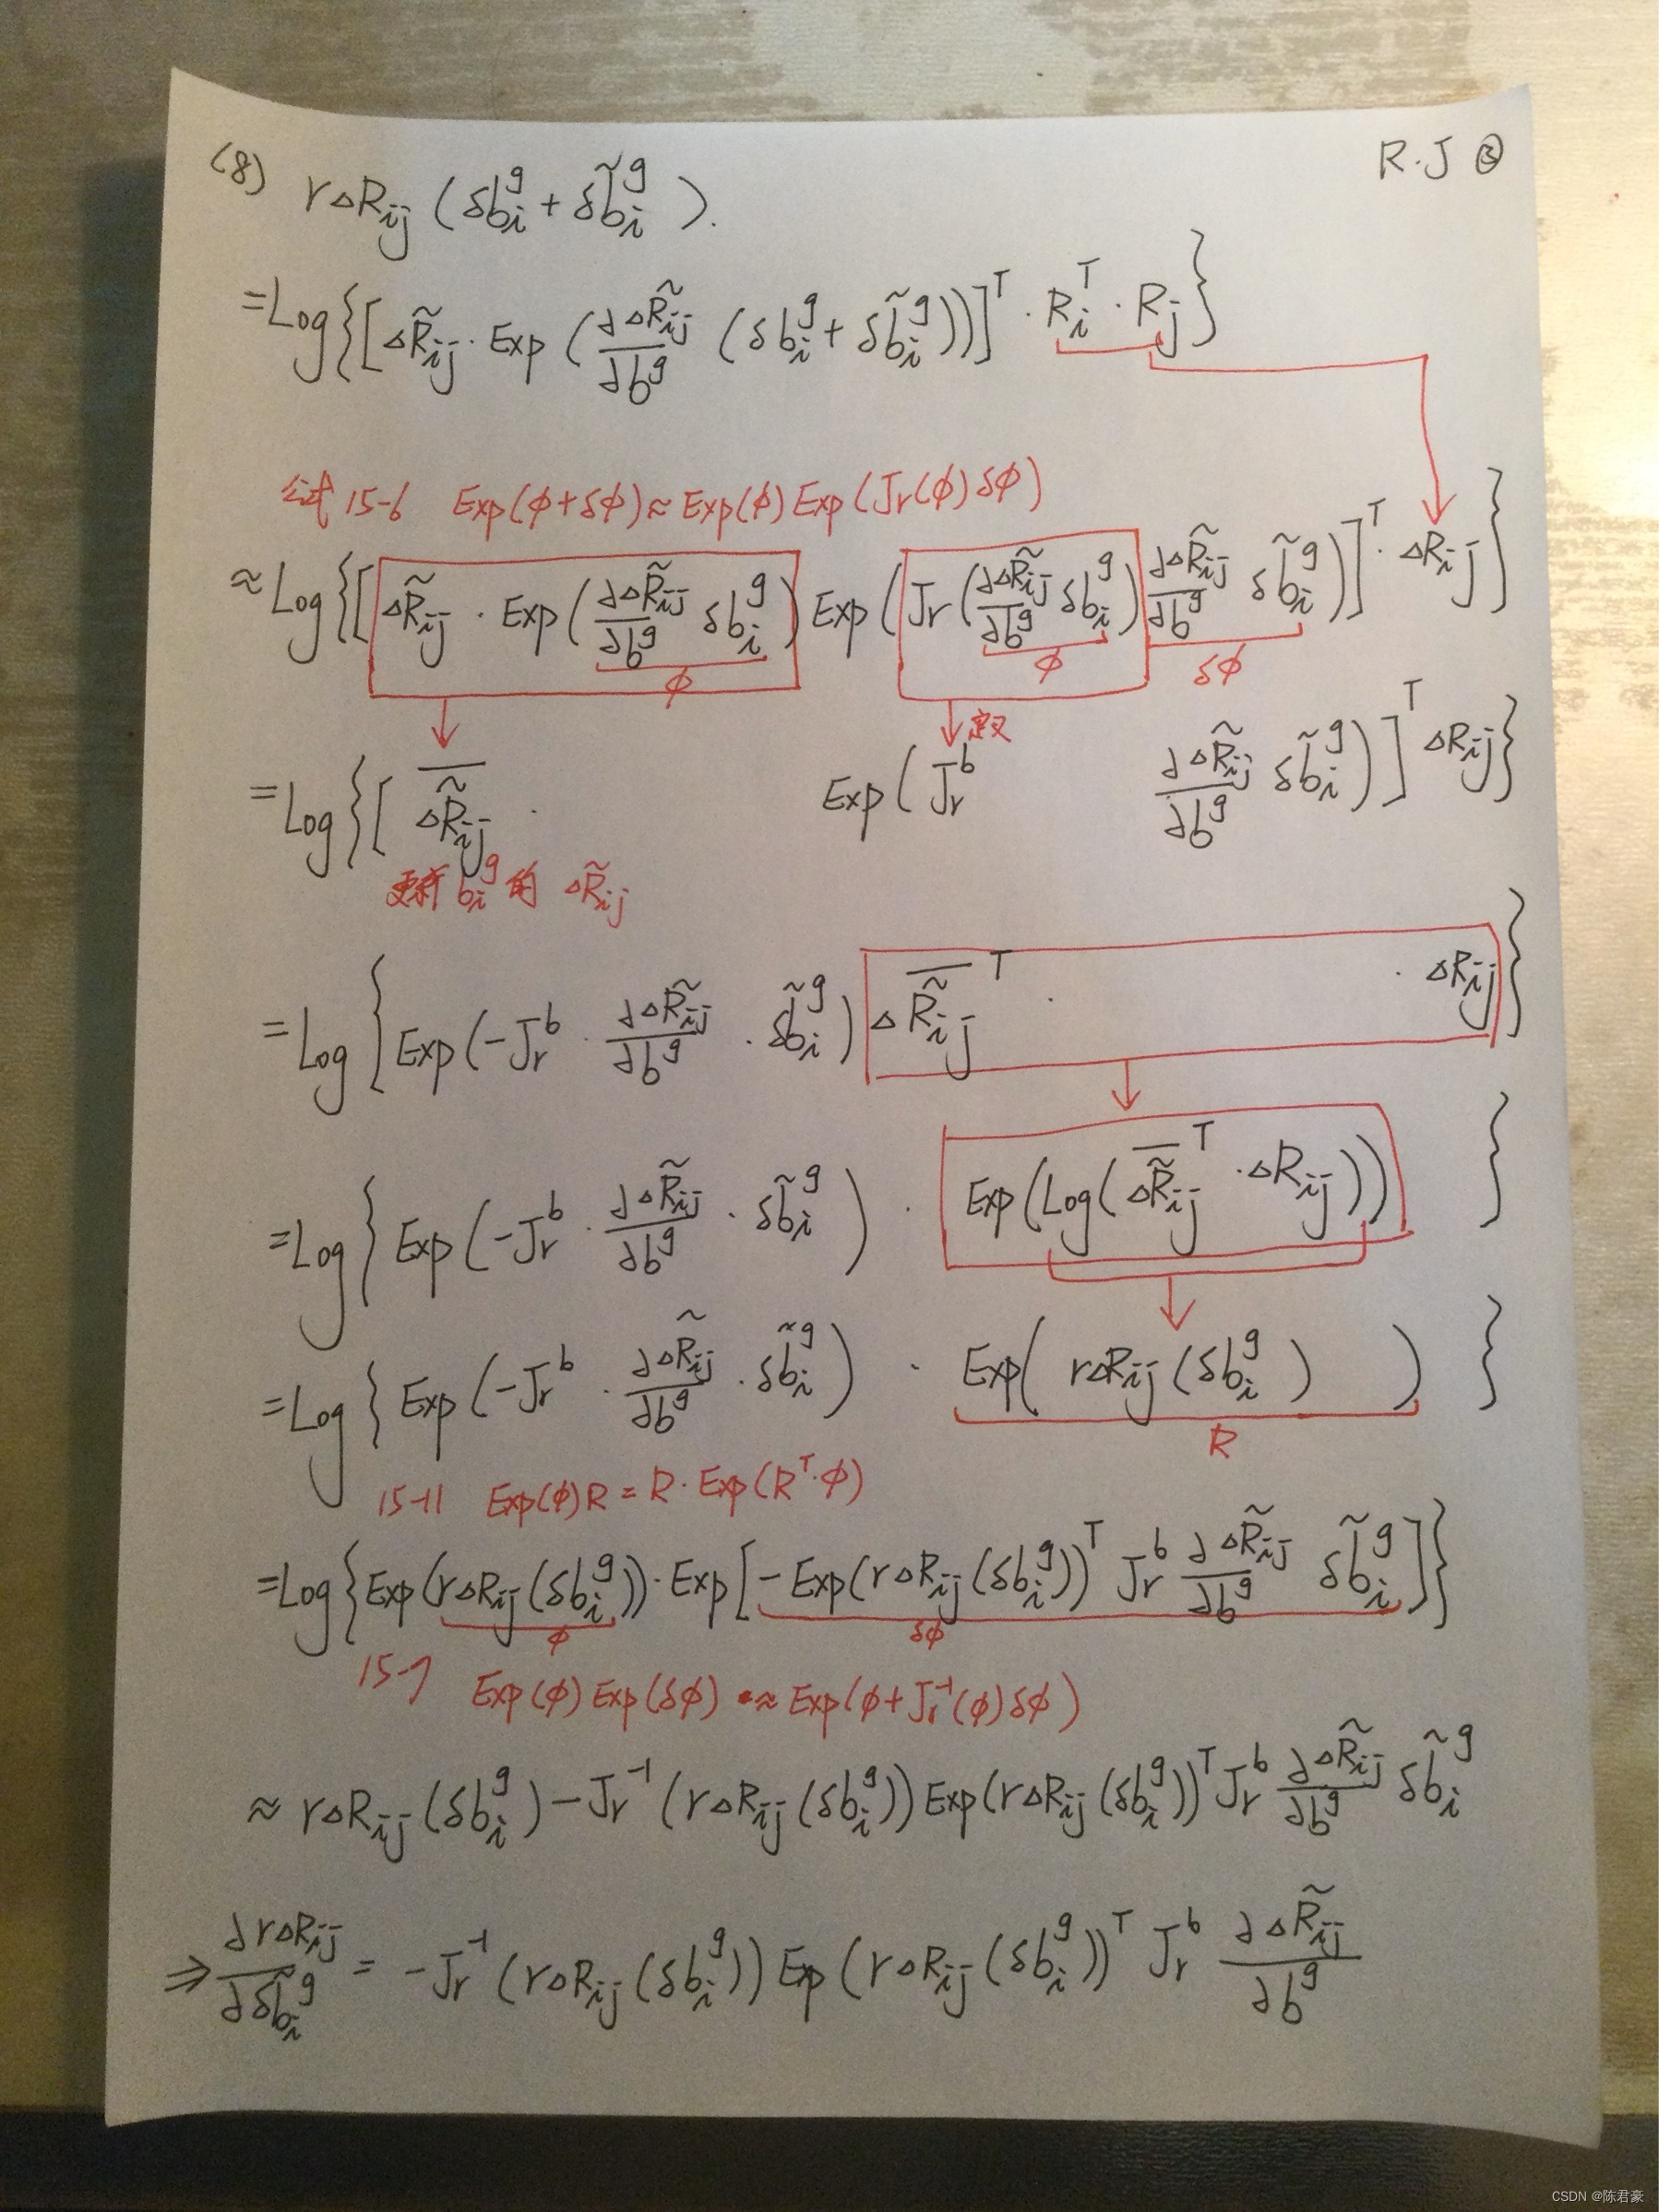 (8) r△R_ij (δb_i^g + δb̃_i^g). R.J ③
= Log{[△R̃_ij · Exp(∂△R̃_ij/∂b^g (δb_i^g + δb̃_i^g))]^T · R_i^T · R_j}
公式 15-6 Exp(φ+δφ) ≈ Exp(φ) Exp(Jr(φ)δφ)
≈ Log{[△R̃_ij · Exp(∂△R̃_ij/∂b^g δb_i^g) Exp(Jr(∂△R̃_ij/∂b^g δb_i^g) ∂△R̃_ij/∂b^g δb̃_i^g)]^T · △R_ij}
φ φ δφ
定义
= Log{[ \overline{△R̃_ij} · Exp(J_r^b ∂△R̃_ij/∂b^g δb̃_i^g)]^T △R_ij}
更新 b_i^g 的 △R̃_ij
= Log{Exp(-J_r^b · ∂△R̃_ij/∂b^g · δb̃_i^g) △\overline{R̃_ij}^T · △R_ij}
= Log{Exp(-J_r^b · ∂△R̃_ij/∂b^g · δb̃_i^g) · Exp(Log(\overline{△R̃_ij}^T · △R_ij))}
= Log{Exp(-J_r^b · ∂△R̃_ij/∂b^g · δb̃_i^g) · Exp(r△R_ij(δb_i^g))}
R
15-11 Exp(φ)R = R·Exp(R^T·φ)
= Log{Exp(r△R_ij(δb_i^g))·Exp[-Exp(r△R_ij(δb_i^g))^T J_r^b ∂△R̃_ij/∂b^g δb̃_i^g]}
φ δφ
15-7 Exp(φ) Exp(δφ) ≈ Exp(φ+J_r^-1(φ)δφ)
≈ r△R_ij(δb_i^g) - J_r^-1(r△R_ij(δb_i^g)) Exp(r△R_ij(δb_i^g))^T J_r^b ∂△R̃_ij/∂b^g δb̃_i^g
⇒ ∂r△R_ij/∂δb̃_i^g = -J_r^-1(r△R_ij(δb_i^g)) Exp(r△R_ij(δb_i^g))^T J_r^b ∂△R̃_ij/∂b^g
CSDN @陈君豪